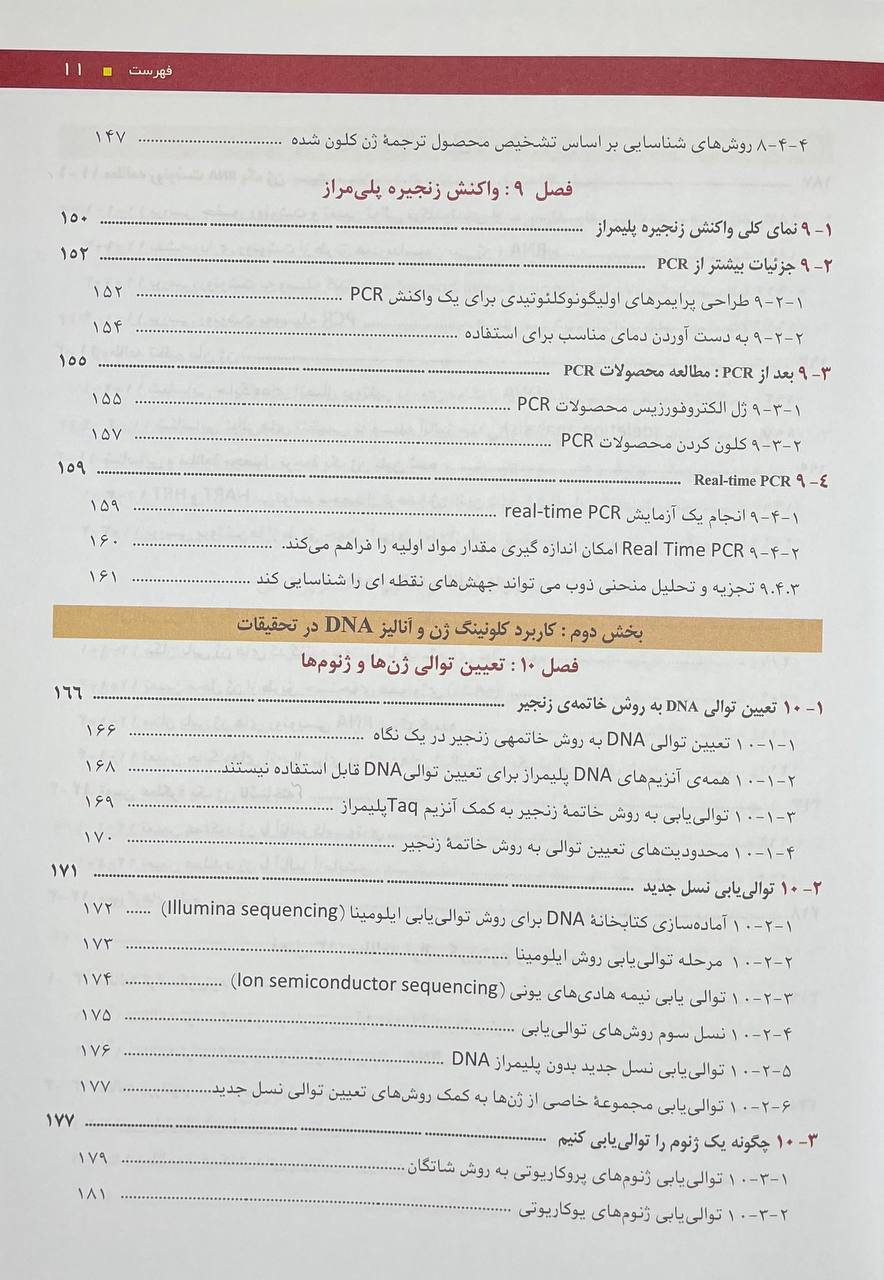 فهرست ■ ۱۱
۸-۴-۴ روش‌های شناسایی بر اساس تشخیص محصول ترجمهٔ ژن کلون شده ........ ۱۴۷
فصل ۹: واکنش زنجیره پلی‌مراز
۹-۱ نمای کلی واکنش زنجیره پلیمراز ........ ۱۵۰
۹-۲ جزئیات بیشتر از PCR ........ ۱۵۲
۹-۲-۱ طراحی پرایمرهای اولیگونوکلئوتیدی برای یک واکنش PCR ........ ۱۵۲
۹-۲-۲ به دست آوردن دمای مناسب برای استفاده ........ ۱۵۴
۹-۳ بعد از PCR: مطالعه محصولات PCR ........ ۱۵۵
۹-۳-۱ ژل الکتروفورزیس محصولات PCR ........ ۱۵۵
۹-۳-۲ کلون کردن محصولات PCR ........ ۱۵۷
۹-٤ Real-time PCR ........ ۱۵۹
۹-۴-۱ انجام یک آزمایش real-time PCR ........ ۱۵۹
۹-۴-۲ Real Time PCR امکان اندازه گیری مقدار مواد اولیه را فراهم می‌کند. ........ ۱۶۰
۹.۴.۳ تجزیه و تحلیل منحنی ذوب می تواند جهش‌های نقطه ای را شناسایی کند ........ ۱۶۱
بخش دوم: کاربرد کلونینگ ژن و آنالیز DNA در تحقیقات
فصل ۱۰: تعیین توالی ژن‌ها و ژنوم‌ها
۱۰-۱ تعیین توالی DNA به روش خاتمه‌ی زنجیر ........ ۱۶۶
۱۰-۱-۱ تعیین توالی DNA به روش خاتمهی زنجیر در یک نگاه ........ ۱۶۶
۱۰-۱-۲ همه‌ی آنزیم‌های DNA پلیمراز برای تعیین توالیDNA قابل استفاده نیستند ........ ۱۶۸
۱۰-۱-۳ توالی‌یابی به روش خاتمهٔ زنجیر به کمک آنزیم Taqپلیمراز ........ ۱۶۹
۱۰-۱-۴ محدودیت‌های تعیین توالی به روش خاتمهٔ زنجیر ........ ۱۷۰
۱۰-۲ توالی‌یابی نسل جدید ........ ۱۷۱
۱۰-۲-۱ آماده‌سازی کتابخانهٔ DNA برای روش توالی‌یابی ایلومینا (Illumina sequencing) ...... ۱۷۲
۱۰-۲-۲ مرحله توالی‌یابی روش ایلومینا ........ ۱۷۳
۱۰-۲-۳ توالی یابی نیمه هادی‌های یونی (Ion semiconductor sequencing) ........ ۱۷۴
۱۰-۲-۴ نسل سوم روش‌های توالی‌یابی ........ ۱۷۵
۱۰-۲-۵ توالی‌یابی نسل جدید بدون پلیمراز DNA ........ ۱۷۶
۱۰-۲-۶ توالی‌یابی مجموعهٔ خاصی از ژن‌ها به کمک روش‌های تعیین توالی نسل جدید ........ ۱۷۷
۱۰-۳ چگونه یک ژنوم را توالی‌یابی کنیم ........ ۱۷۷
۱۰-۳-۱ توالی‌یابی ژنوم‌های پروکاریوتی به روش شاتگان ........ ۱۷۹
۱۰-۳-۲ توالی‌یابی ژنوم‌های یوکاریوتی ........ ۱۸۱